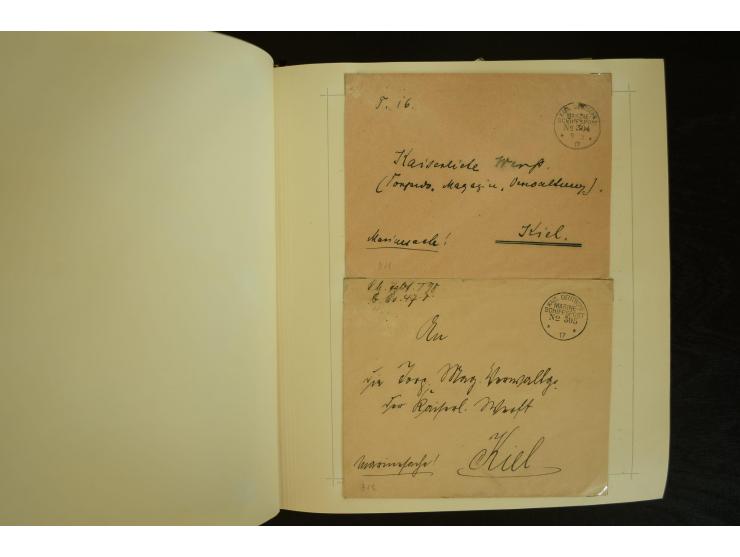 T. 16.
KAIS. DEUTSCHE
MARINE-
SCHIFFSPOST
No 304
17
Kaiserliche Werft.
(Torpedo, Magazin, Verwaltung).
Marinesache!
Kiel.
KAIS. DEUTSCHE
MARINE-
SCHIFFSPOST
No 305
17
An
die Torp. Mag. Verwaltg.
der Kaiserl. Werft
Marinesache!
Kiel